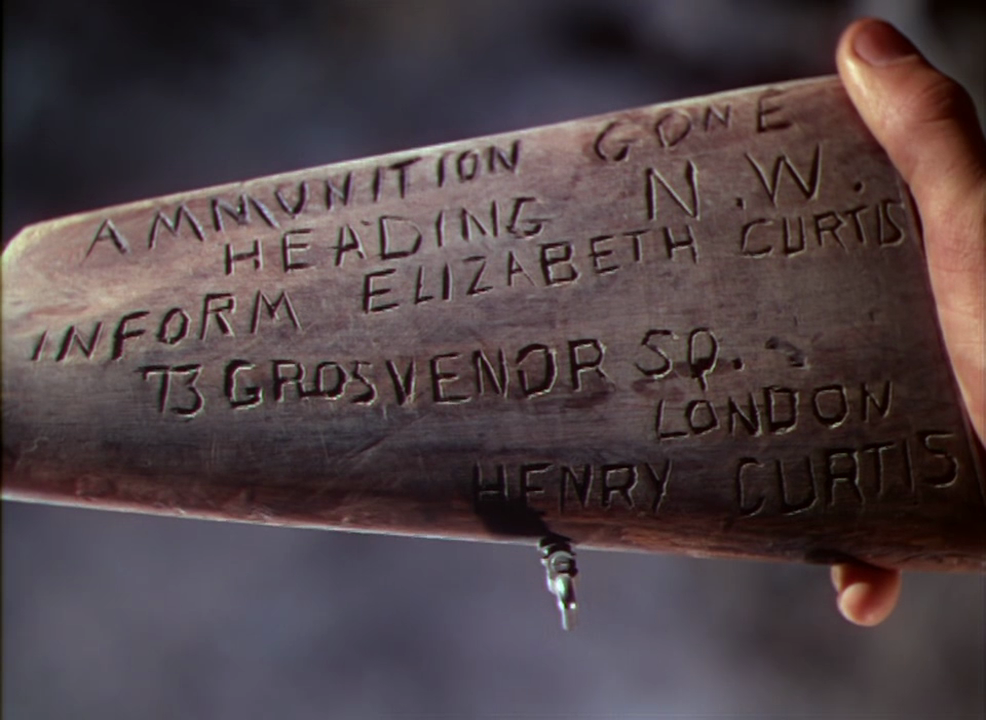 AMMUNITION GONE
HEADING N.W.
INFORM ELIZABETH CURTIS
73 GROSVENOR SQ.
LONDON
HENRY CURTIS